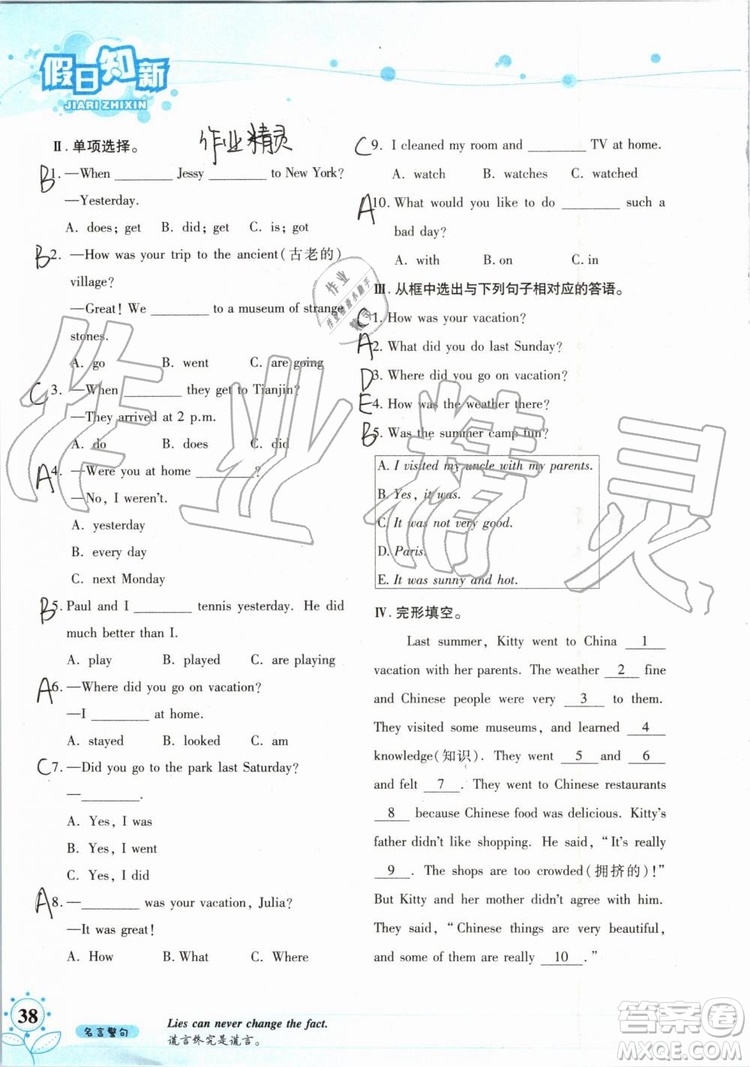 假日知新
JIARI ZHIXIN
作业精灵
Ⅱ. 单项选择。
B1. —When ________ Jessy ________ to New York?
—Yesterday.
A. does; get B. did; get C. is; got
B2. —How was your trip to the ancient(古老的)
village?
—Great! We ________ to a museum of strange
stones.
A. go B. went C. are going
C3. —When ________ they get to Tianjin?
—They arrived at 2 p.m.
A. do B. does C. did
A4. —Were you at home ________?
—No, I weren't.
A. yesterday
B. every day
C. next Monday
B5. Paul and I ________ tennis yesterday. He did
much better than I.
A. play B. played C. are playing
A6. —Where did you go on vacation?
—I ________ at home.
A. stayed B. looked C. am
C7. —Did you go to the park last Saturday?
—________.
A. Yes, I was
B. Yes, I went
C. Yes, I did
A8. —________ was your vacation, Julia?
—It was great!
A. How B. What C. Where
C9. I cleaned my room and ________ TV at home.
A. watch B. watches C. watched
A10. What would you like to do ________ such a
bad day?
A. on B. with C. in
Ⅲ. 从框中选出与下列句子相对应的答语。
C1. How was your vacation?
A2. What did you do last Sunday?
D3. Where did you go on vacation?
E4. How was the weather there?
B5. Was the summer camp fun?
A. I visited my uncle with my parents.
B. Yes, it was.
C. It was not very good.
D. Paris.
E. It was sunny and hot.
Ⅳ. 完形填空。
Last summer, Kitty went to China 1
vacation with her parents. The weather 2 fine
and Chinese people were very 3 to them.
They visited some museums, and learned 4
knowledge(知识). They went 5 and 6
and felt 7 . They went to Chinese restaurants
8 because Chinese food was delicious. Kitty's
father didn't like shopping. He said, "It's really
9 . The shops are too crowded(拥挤的)!"
But Kitty and her mother didn't mind. They
said, "Chinese things are very beautiful,
and some of them are really 10 ."
38
名言警句
Lies can never change the fact.
谎言终究是谎言。
作业精灵
答案圈